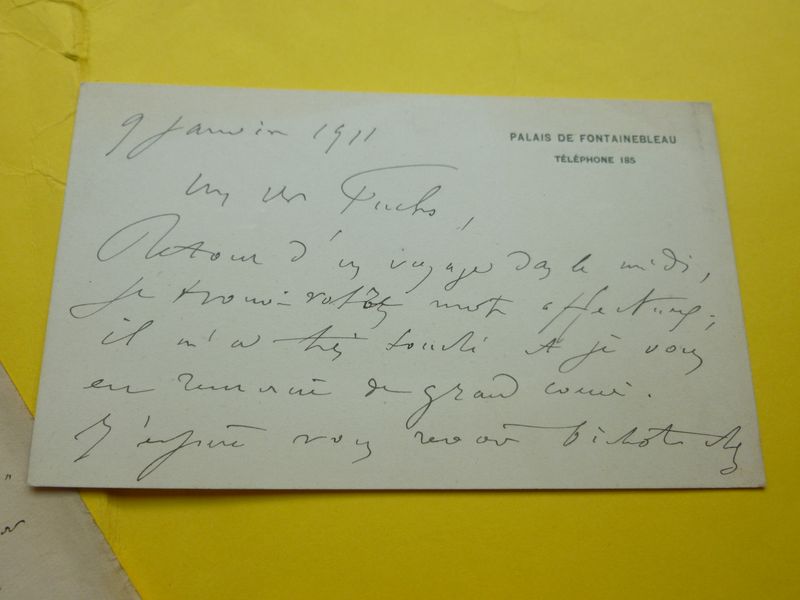 9 Janvier 1911
PALAIS DE FONTAINEBLEAU
TÉLÉPHONE 185
Mon cher Fuchs,
Retour d'un voyage dans le midi,
je trouve votre mot affectueux;
il m'a très touché et je vous
en remercie de grand coeur.
J'espère vous revoir bientôt